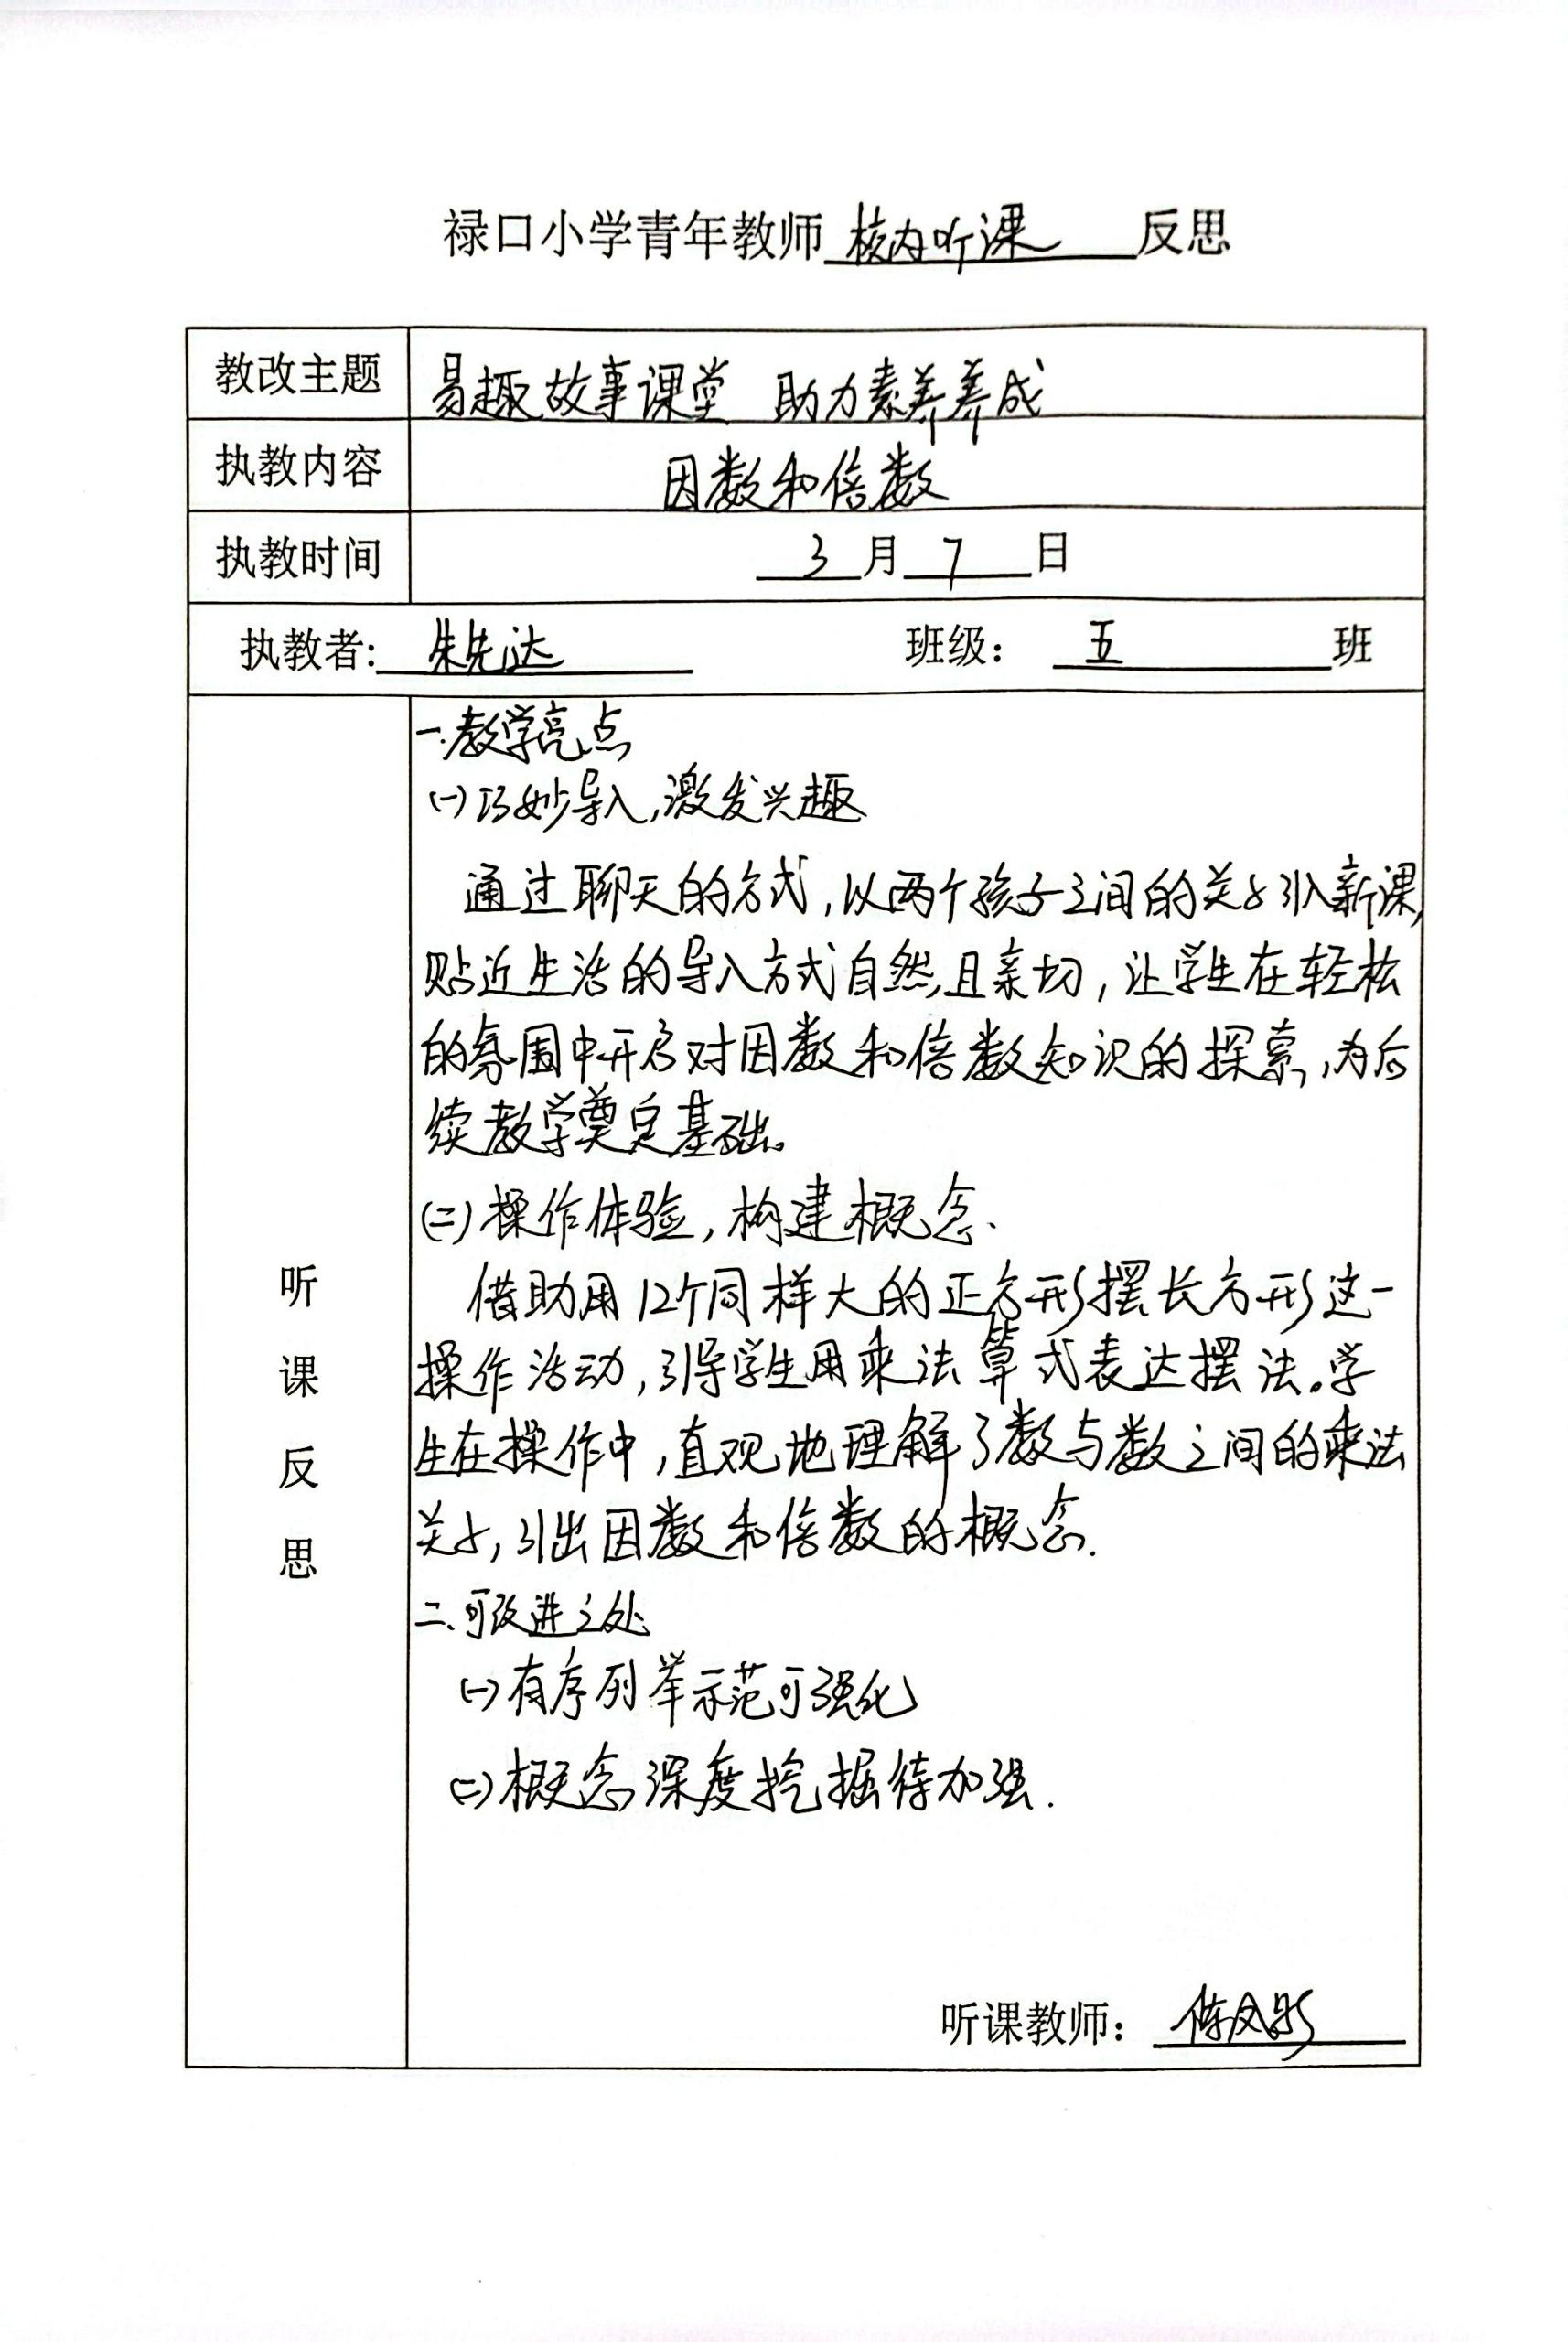 禄口小学青年教师 校内听课 反思
教改主题 易趣故事课堂 助力素养养成
执教内容 因数和倍数
执教时间 3月7日
执教者: 朱先达 班级: 五 班
听课反思
一.教学亮点
(一)巧妙导入,激发兴趣
通过聊天的方式,以两个孩子之间的关系引入新课,
贴近生活的导入方式自然且亲切,让学生在轻松
的氛围中开启对因数和倍数知识的探索,为后
续教学奠定基础。
(二)操作体验,构建概念.
借助用12个同样大的正方形摆长方形这一
操作活动,引导学生用乘法算式表达摆法。学
生在操作中,直观地理解了数与数之间的乘法
关系,引出因数和倍数的概念.
二.可改进之处
(一)有序列举示范可强化
(二)概念深度挖掘待加强.
听课教师: 陈文彤